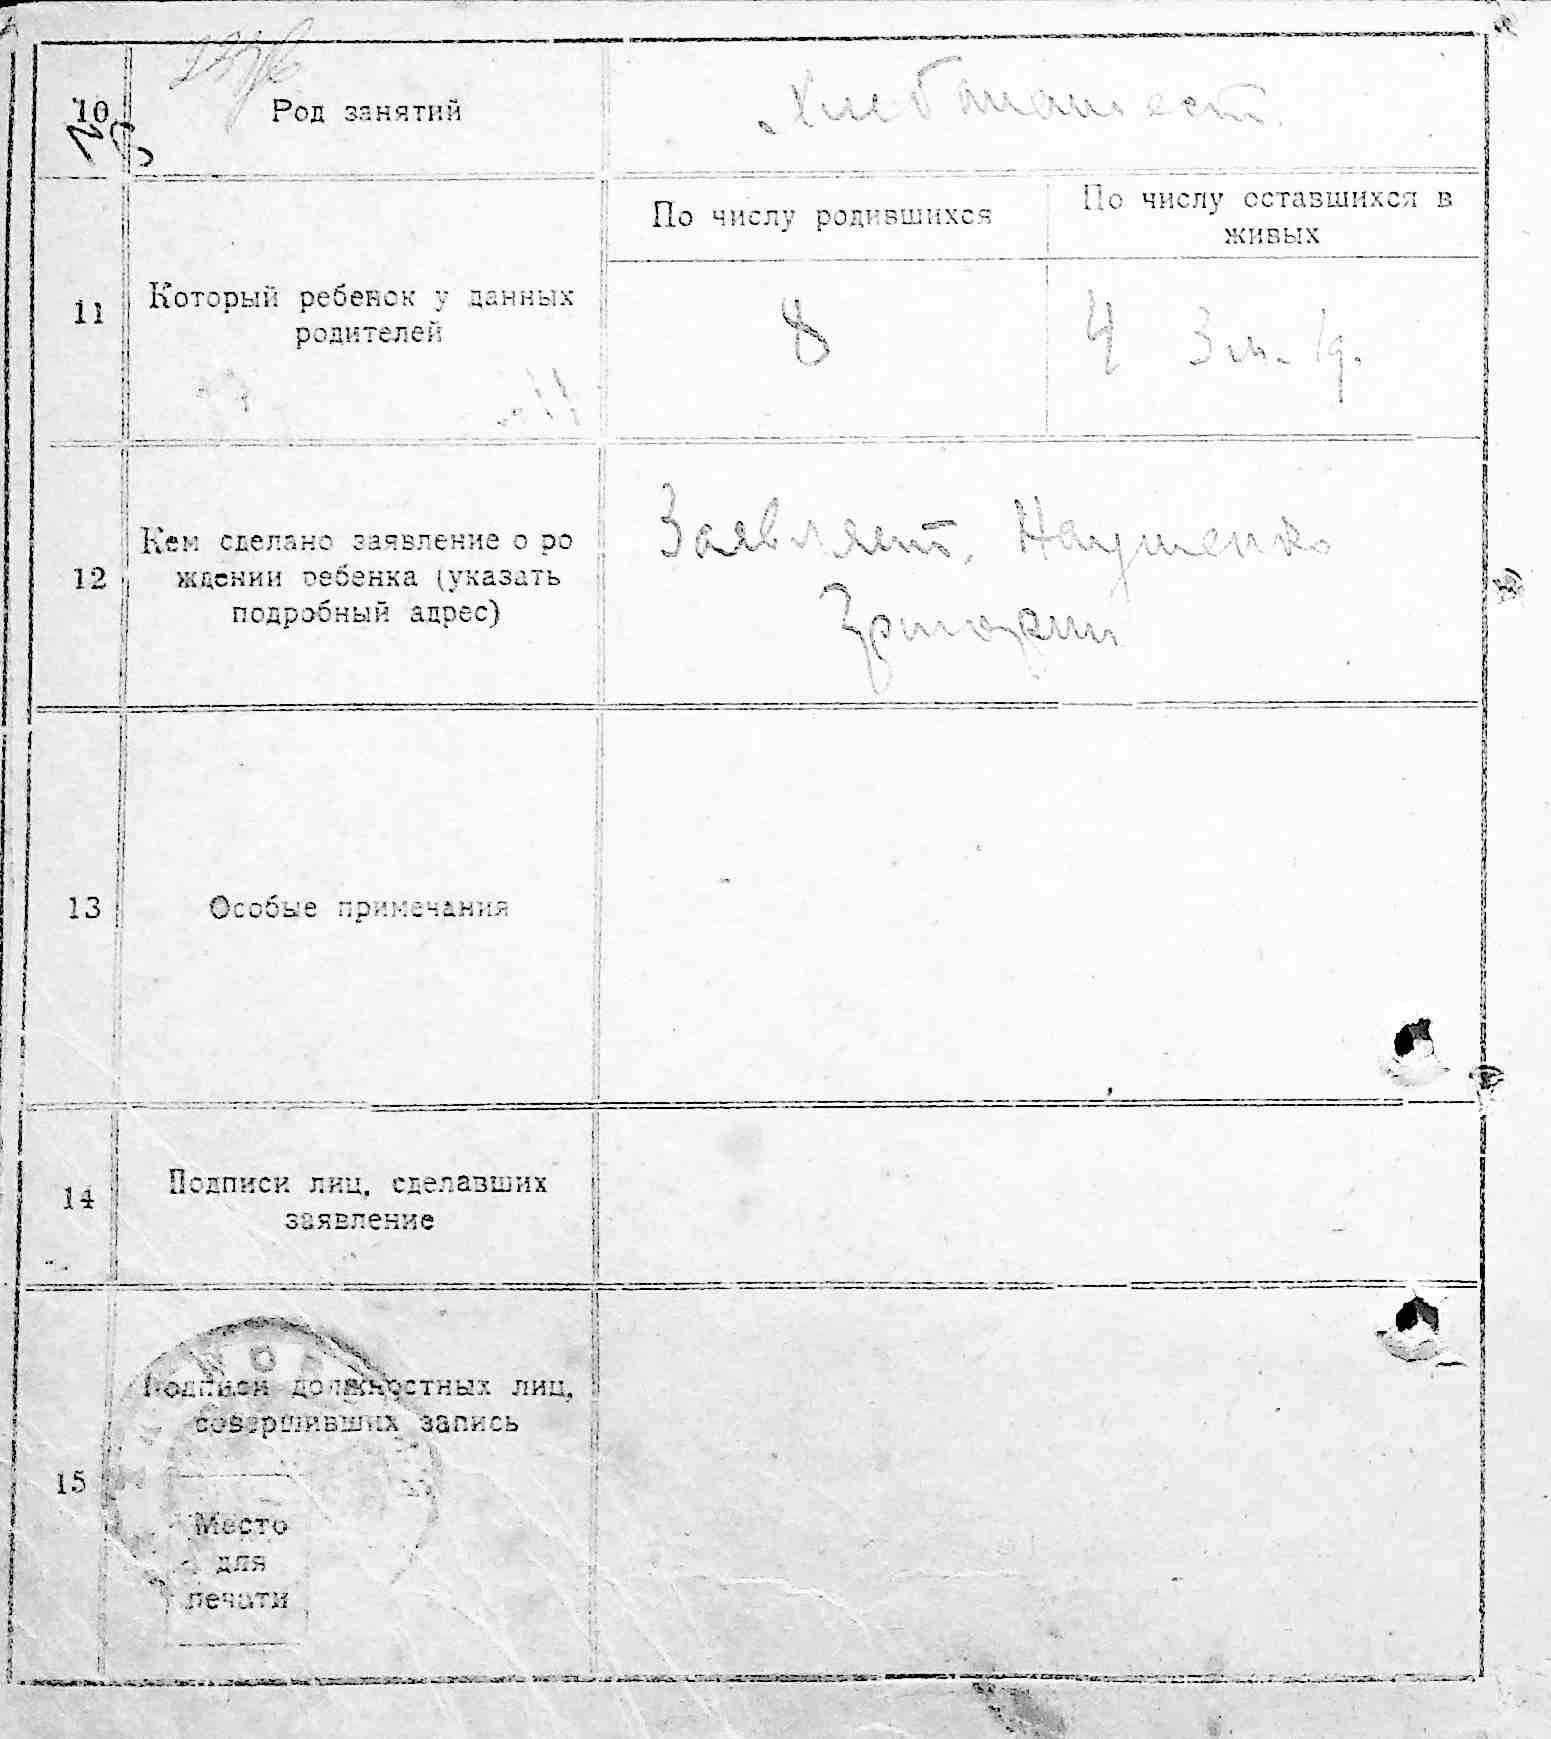 10
Род занятий
Хлебопашест.
По числу родившихся
По числу оставшихся в
живых
11
Который ребенок у данных
родителей
8
4 3 м. 1 д.
12
Кем сделано заявление о ро
ждении ребенка (указать
подробный адрес)
Заявляет,
13
Особые примечания
14
Подписи лиц, сделавших
заявление
15
Подписи должностных лиц,
совершивших запись
Место
для
печати